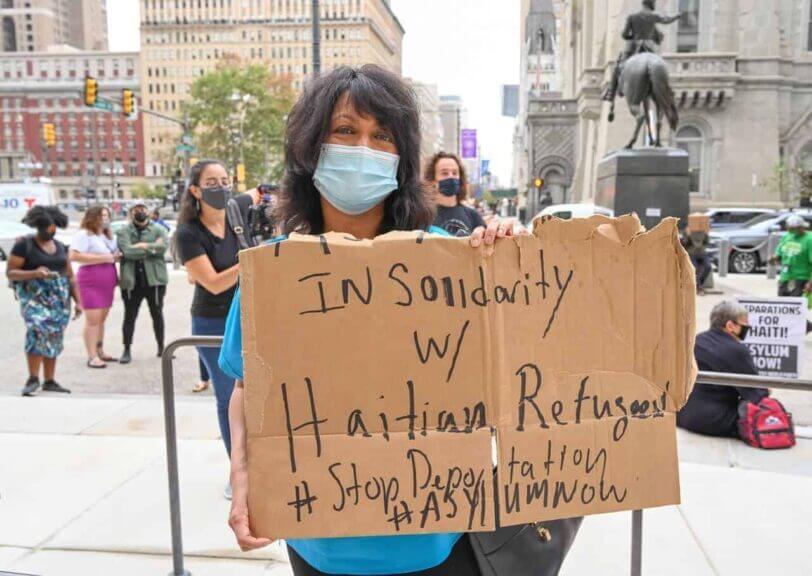 IN Solidarity
w/
Haitian Refugees
#StopDeportation
#ASYLUMNOW
EPARATIONS
FOR
HAITI!
SYLUM
OW!